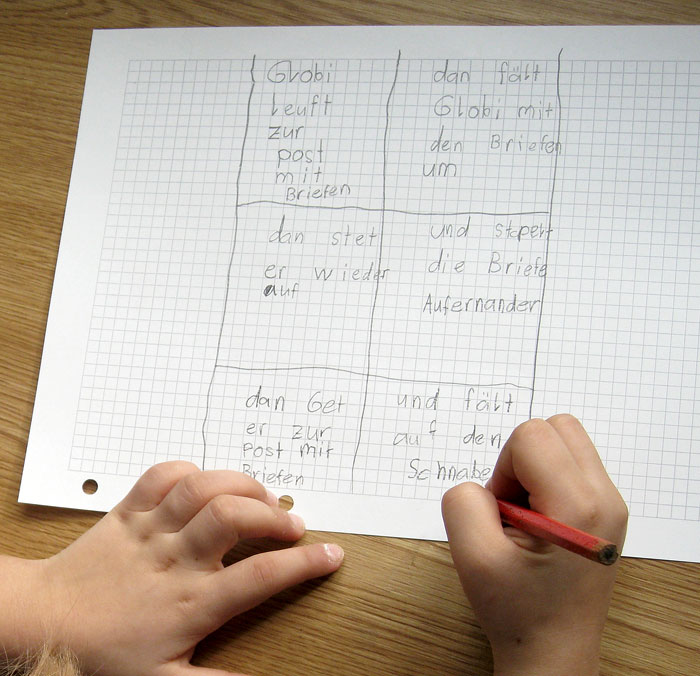 Globi
leuft
zur
post
mit
Briefen
dan fält
Globi mit
den Briefen
um
dan stet
er wieder
auf
und stapelt
die Briefe
Aufernander
dan Get
er zur
Post mit
Briefen
und fält
auf den
Schnabe